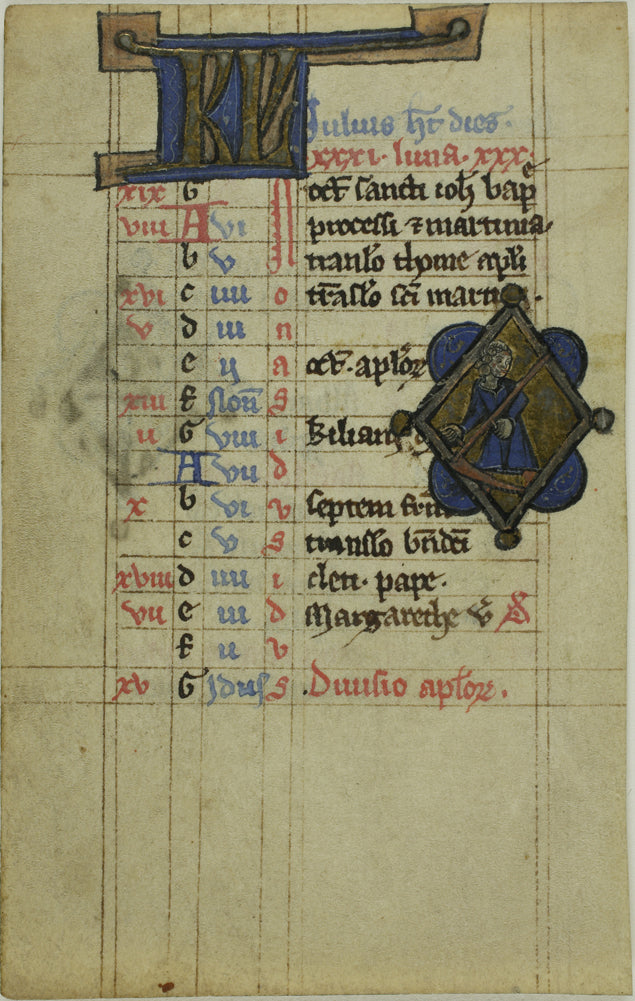 KL Iulius ht dies.
xxxi. luna. xxx.
xix G oct sancti ioh bapͤ
viii A vi processi ⁊ martinia
b v translo thome apli
xvi c iiii o traslo sci martini.
v d iii n
e ii a oct. aplor
xiii f Non S
ii G viii i kiliani
A vii d
x b vi v septem frm
c v s translo bndci
xviii d iiii i cleti. pape.
vii e iii d Margarethe v S
f ii v
xv G Idus s Diuisio aplor.